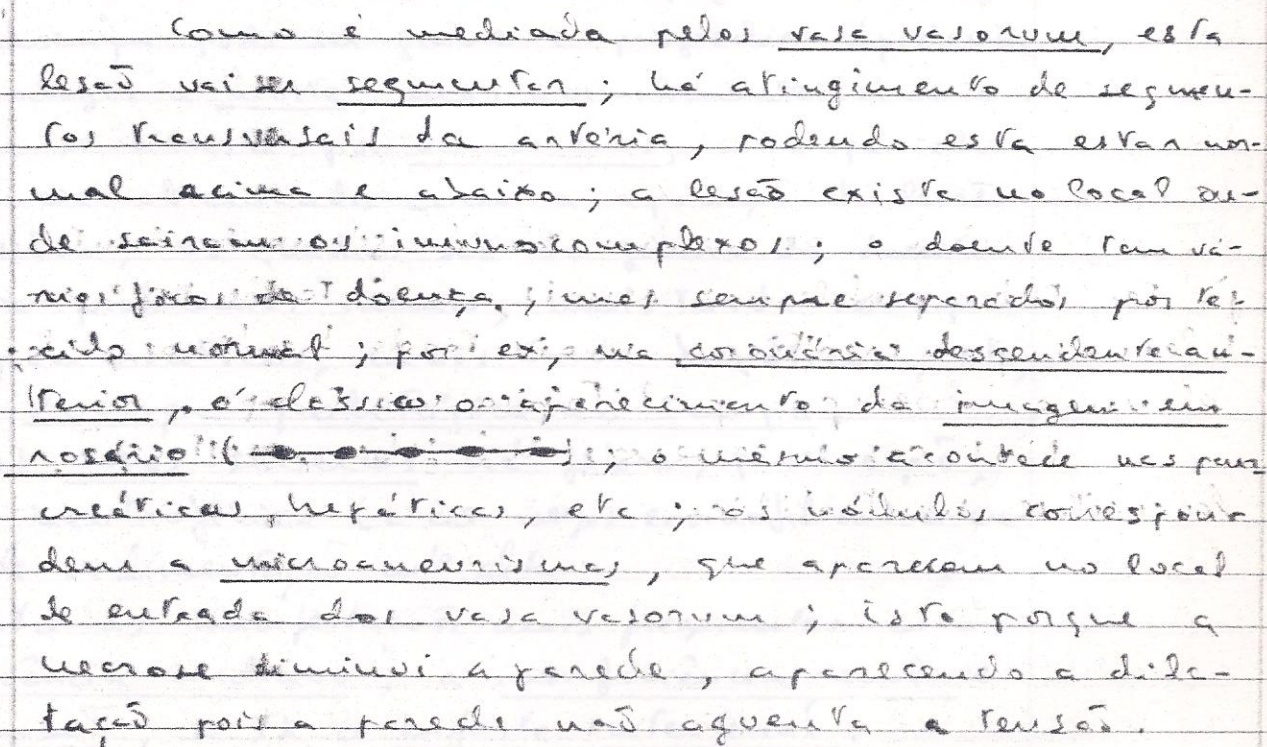 Como é mediada pelos vasa vasorum, esta
lesaõ vai ser segmentar ; há atingimento de segmen-
tos transversais da artéria, podendo esta estar nor-
mal acima e abaixo ; a lesaõ existe no local on-
de sairam os imunocomplexos ; o doente tem vá-
rios focos de doença, mas sempre separados por te-
cido normal ; por ex, na coronária descendente an-
terior, é classico o aparecimento da imagem em
rosário ( ) ; o mesmo acontece nas pan
creáticas, hepáticas, etc ; os nódulos correspon
dem a microaneurismas, que aparecem no local
de entrada dos vasa vasorum ; isto porque a
necrose diminui a parede, aparecendo a dila-
taçaõ pois a parede naõ aguenta a tensaõ.